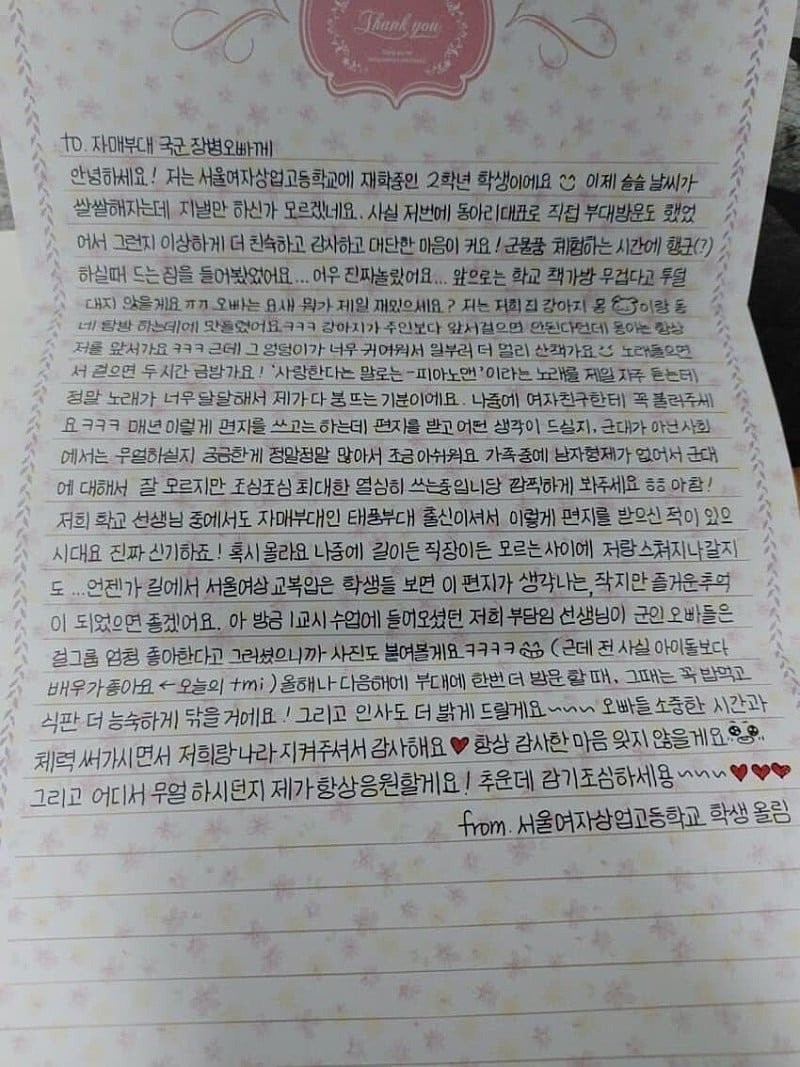 Thank you
to. 자매부대 국군 장병오빠께
안녕하세요! 저는 서울여자상업고등학교에 재학중인 2학년 학생이에요 이제 슬슬 날씨가
쌀쌀해지는데 지낼만 하신가 모르겠네요. 사실 저번에 동아리대표로 직접 부대방문도 했었
어서 그런지 이상하게 더 친숙하고 감사하고 대단한 마음이 커요! 군물품 체험하는 시간에 행군(?)
하실때 드는 짐을 들어봤었어요... 어우 진짜놀랐어요... 앞으로는 학교 책가방 무겁다고 투덜
대지 않을게요 ㅠㅠ 오빠는 요새 뭐가 제일 재밌으세요? 저는 저희집 강아지 몽이랑 동
네 탐방 하는데에 맛들렸어요ㅋㅋㅋ 강아지가 주인보다 앞서걸으면 안된다던데 몽이는 항상
저를 앞서가요 ㅋㅋㅋ 근데 그 엉덩이가 너무 귀여워서 일부러 더 멀리 산책가요 노래들으면
서 걸으면 두시간 금방가요! '사랑한다는 말로는-피아노맨'이라는 노래를 제일 자주 듣는데
정말 노래가 너무 달달해서 제가 다 붕 뜨는 기분이에요. 나중에 여자친구한테 꼭 불러주세
요ㅋㅋㅋ 매년 이렇게 편지를 쓰고는 하는데 편지를 받고 어떤 생각이 드실지, 군대가 아닌 사회
에서는 무얼하실지 궁금한게 정말정말 많아서 조금 아쉬워요 가족중에 남자형제가 없어서 군대
에 대해서 잘 모르지만 조심조심 최대한 열심히 쓰는중입니당 깜찍하게 봐주세요 ㅎㅎ 아참!
저희 학교 선생님 중에서도 자매부대인 태풍부대 출신이셔서 이렇게 편지를 받으신 적이 있으
시대요 진짜 신기하죠! 혹시 몰라요 나중에 길이든 직장이든 모르는사이에 저랑 스쳐지나갈지
도 ...언젠가 길에서 서울여상 교복입은 학생들 보면 이 편지가 생각나는, 작지만 즐거운추억
이 되었으면 좋겠어요. 아 방금 1교시 수업에 들어오셨던 저희 부담임 선생님이 군인 오빠들은
걸그룹 엄청 좋아한다고 그러셨으니까 사진도 붙여볼게요ㅋㅋㅋㅋ (근데 전 사실 아이돌보다
배우가좋아요 ← 오늘의 tmi) 올해나 다음해에 부대에 한번 더 방문 할 때, 그때는 꼭 밥먹고
식판 더 능숙하게 닦을거에요! 그리고 인사도 더 밝게 드릴게요~~~ 오빠들 소중한 시간과
체력 써가시면서 저희랑 나라 지켜주셔서 감사해요♥ 항상 감사한 마음 잊지 않을게요
그리고 어디서 무얼 하시던지 제가 항상응원할게요! 추운데 감기조심하세용~~~♥♥♥
from. 서울여자상업고등학교 학생 올림